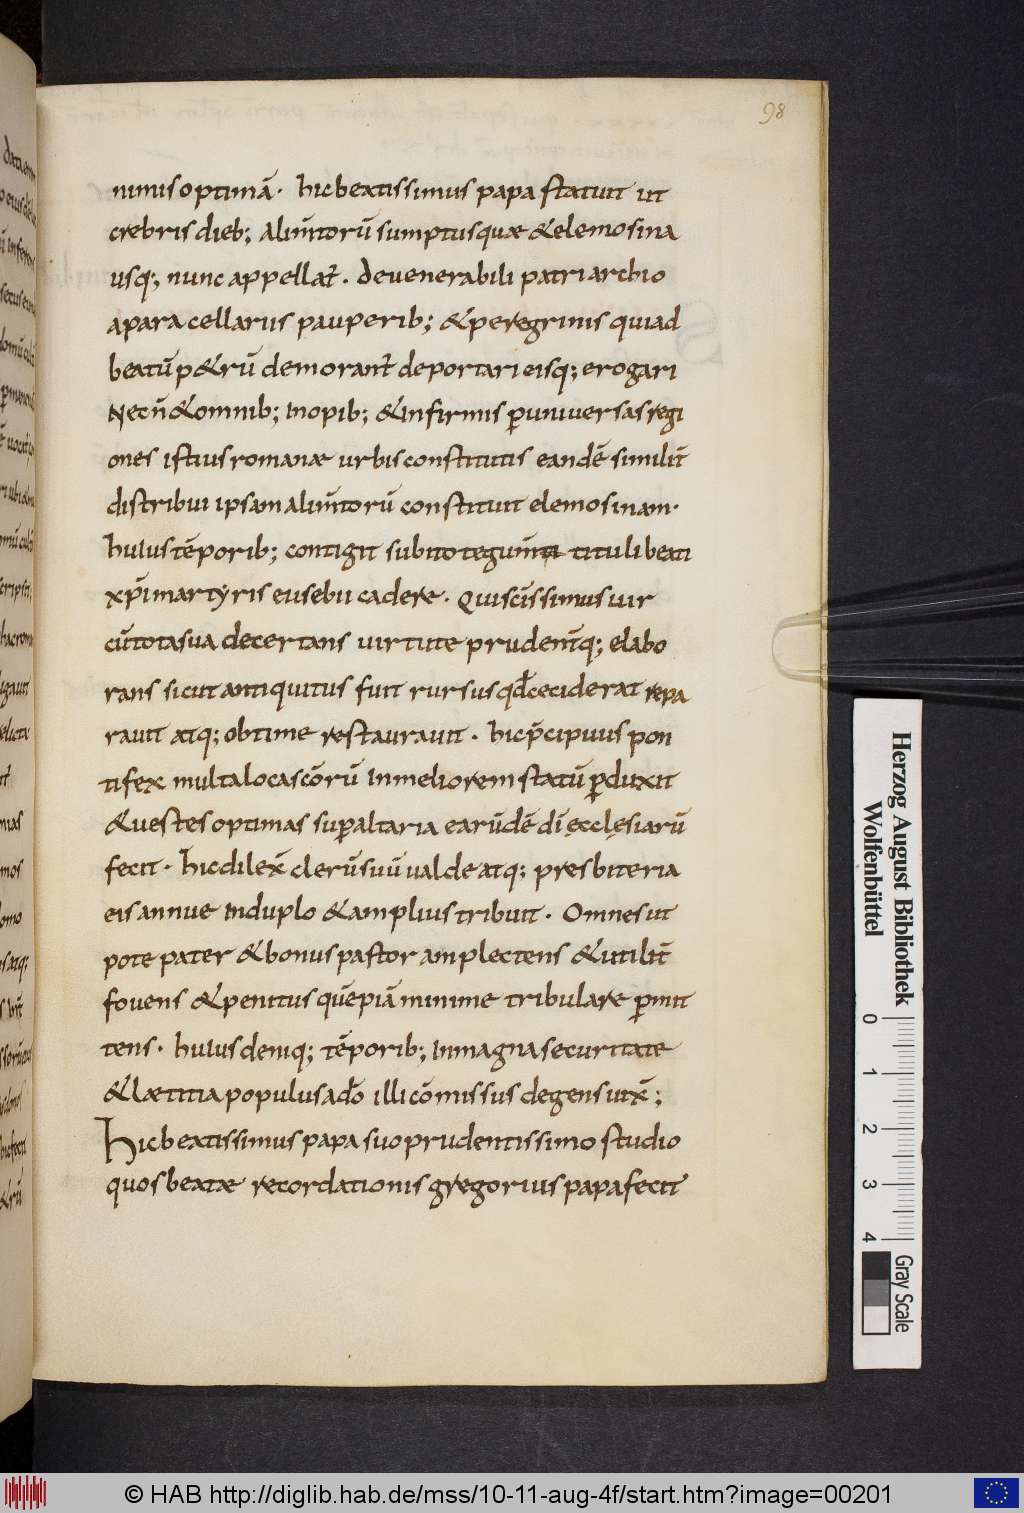 98
nimis optimā · hic beatissimus papa statuit ut
crebris dieb; alim̄torū sumptus quæ & elemosina
usq; nunc appellat̄ . de venerabili patriarchio
a paracellariis pauperib; & peregrinis qui ad
beatū p&rū demorant̄ deportari eisq; erogari
Necn̄ & omnib; inopib; & infirmis p̄ universas regi
ones istius romanæ urbis constitutis eandē similit̄
distribui ipsam alim̄torū constituit elemosinam ·
huius tēporib; contigit subito tegum̄ta tituli beati
xp̄i martyris eusebii cadere · Qui sc̄issimus vir
cū tota sua decertans virtute prudent̄q; elabo
rans sicut antiquitus fuit rursus qđ ceciderat repa
ravit atq; obtime restauravit · hic p̄cipuus pon
tifex multa loca sc̄orū in meliorem statū p̄duxit
& vestes optimas sup̄ altaria earūdē dī ęcclęsiarū
fecit · hic dilex̄ clerū suū valde atq; presbiteria
eis annue in duplo & amplius tribuit · Omnes ut
pote pater & bonus pastor amplectens & utilit̄
fovens & penitus quēpiā minime tribulare p̄mit
tens · huius deniq; tēporib; in magna securitate
& lætitia populus a dō illi cōmissus degens vix̄ ;
Hic beatissimus papa suo prudentissimo studio
quos beatæ recordationis gregorius papa fecit
Herzog August Bibliothek
Wolfenbüttel
0 1 2 3 4
Gray Scale
© HAB http://diglib.hab.de/mss/10-11-aug-4f/start.htm?image=00201